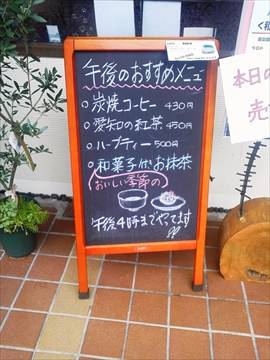 午後のおすすめメニュー
○炭焼コーヒー 430円
○愛知の紅茶 450円
○ハーブティー 500円
○和菓子付お抹茶
(おいしい季節の)
午後4時までやってます
本日の
売